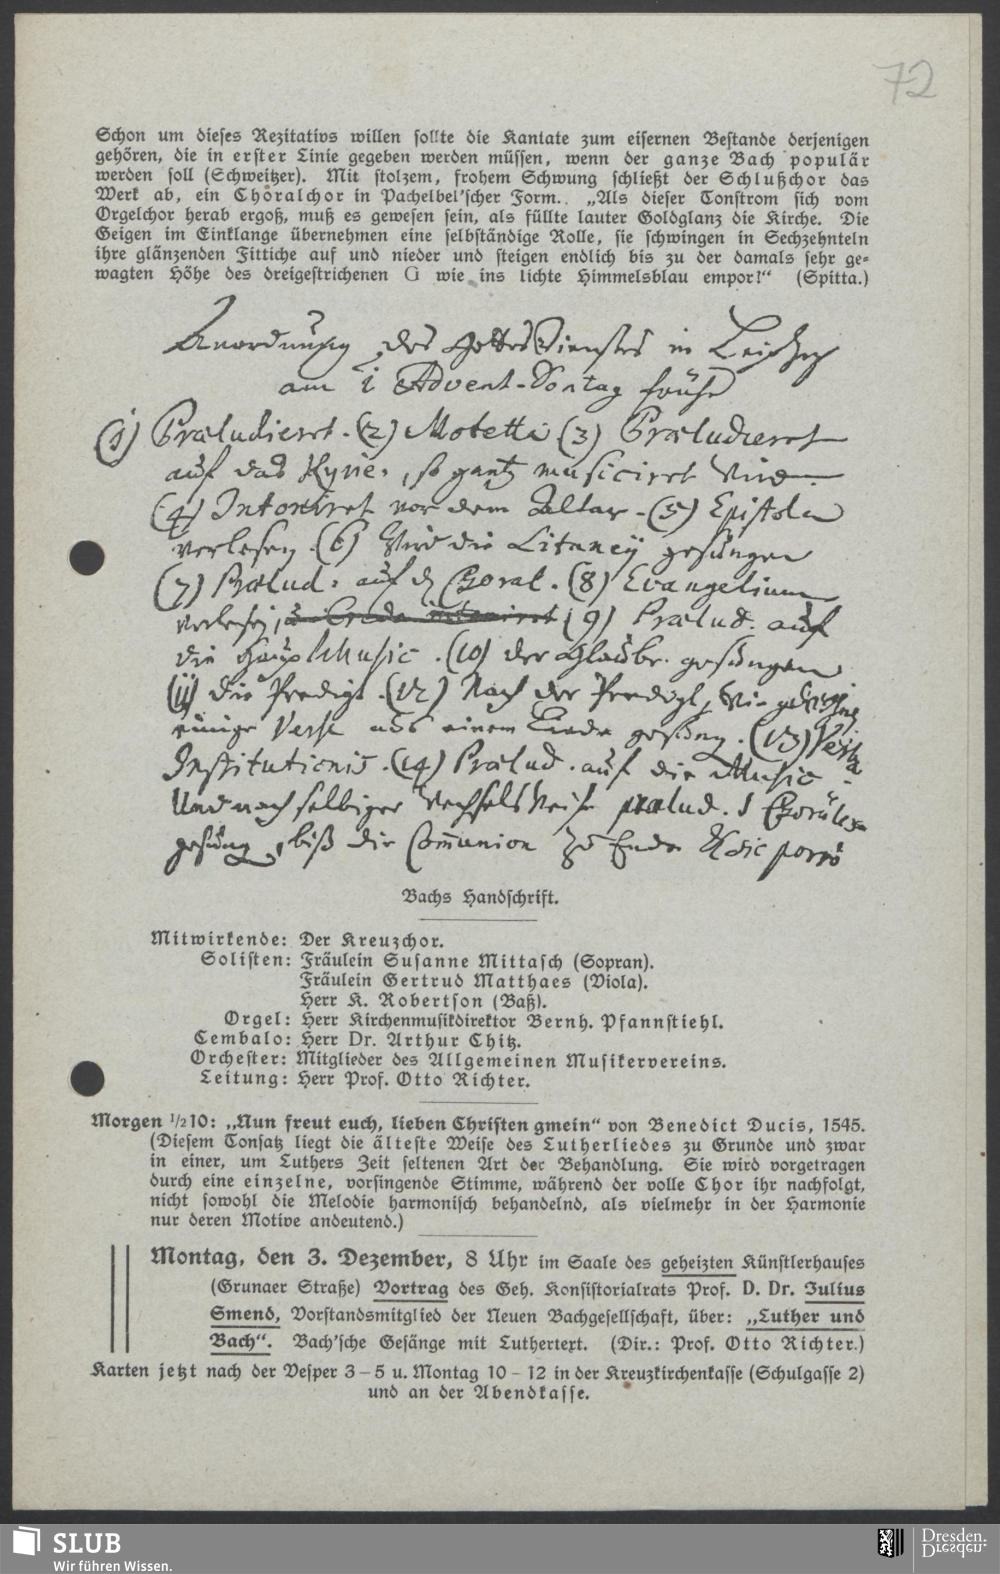 72
Schon um dieses Rezitativs willen sollte die Kantate zum eisernen Bestande derjenigen
gehören, die in erster Linie gegeben werden müssen, wenn der ganze Bach populär
werden soll (Schweitzer). Mit stolzem, frohem Schwung schließt der Schlußchor das
Werk ab, ein Choralchor in Pachelbel'scher Form. „Als dieser Tonstrom sich vom
Orgelchor herab ergoß, muß es gewesen sein, als füllte lauter Goldglanz die Kirche. Die
Geigen im Einklange übernehmen eine selbständige Rolle, sie schwingen in Sechzehnteln
ihre glänzenden Fittiche auf und nieder und steigen endlich bis zu der damals sehr ge-
wagten Höhe des dreigestrichenen G wie ins lichte Himmelsblau empor!“ (Spitta.)
Anordnung des GottesDienstes in Leipzig
am 1 Advent-Sontag frühe
(1) Præludieret. (2) Motetta (3) Præludieret
auf das Kyrie, so gantz musiciret wird
(4) Intoniret vor dem Altar. (5) Epistola
verlesen. (6) Wird die Litaney gesungen
(7) Prælud: auf d Choral. (8) Evangelium
verlesen, u. Credo intoniret (9) Prælud. auf
die HauptMusic. (10) der Glaube gesungen
(11) Die Predigt. (12) Nach der Predigt, wie
einige Verse aus einem Liede gesung. (13) Verba
Institutionis. (14) Prælud. auf die Music.
Und nach selbiger wechselsweise prælud. Choräle
gesung, biß die Communion zu Ende & sic porrò
Bachs Handschrift.
Mitwirkende: Der Kreuzchor.
Solisten: Fräulein Susanne Mittasch (Sopran).
Fräulein Gertrud Matthaes (Viola).
Herr K. Robertson (Baß).
Orgel: Herr Kirchenmusikdirektor Bernh. Pfannstiehl.
Cembalo: Herr Dr. Arthur Chitz.
Orchester: Mitglieder des Allgemeinen Musikervereins.
Leitung: Herr Prof. Otto Richter.
Morgen 1/210: „Nun freut euch, lieben Christen gmein“ von Benedict Ducis, 1545.
(Diesem Tonsatz liegt die älteste Weise des Lutherliedes zu Grunde und zwar
in einer, um Luthers Zeit seltenen Art der Behandlung. Sie wird vorgetragen
durch eine einzelne, vorsingende Stimme, während der volle Chor ihr nachfolgt,
nicht sowohl die Melodie harmonisch behandelnd, als vielmehr in der Harmonie
nur deren Motive andeutend.)
Montag, den 3. Dezember, 8 Uhr im Saale des geheizten Künstlerhauses
(Grunaer Straße) Vortrag des Geh. Konsistorialrats Prof. D. Dr. Julius
Smend, Vorstandsmitglied der Neuen Bachgesellschaft, über: „Luther und
Bach“. Bach'sche Gesänge mit Luthertext. (Dir.: Prof. Otto Richter.)
Karten jetzt nach der Vesper 3–5 u. Montag 10–12 in der Kreuzkirchenkasse (Schulgasse 2)
und an der Abendkasse.
SLUB
Wir führen Wissen.
Dresden.